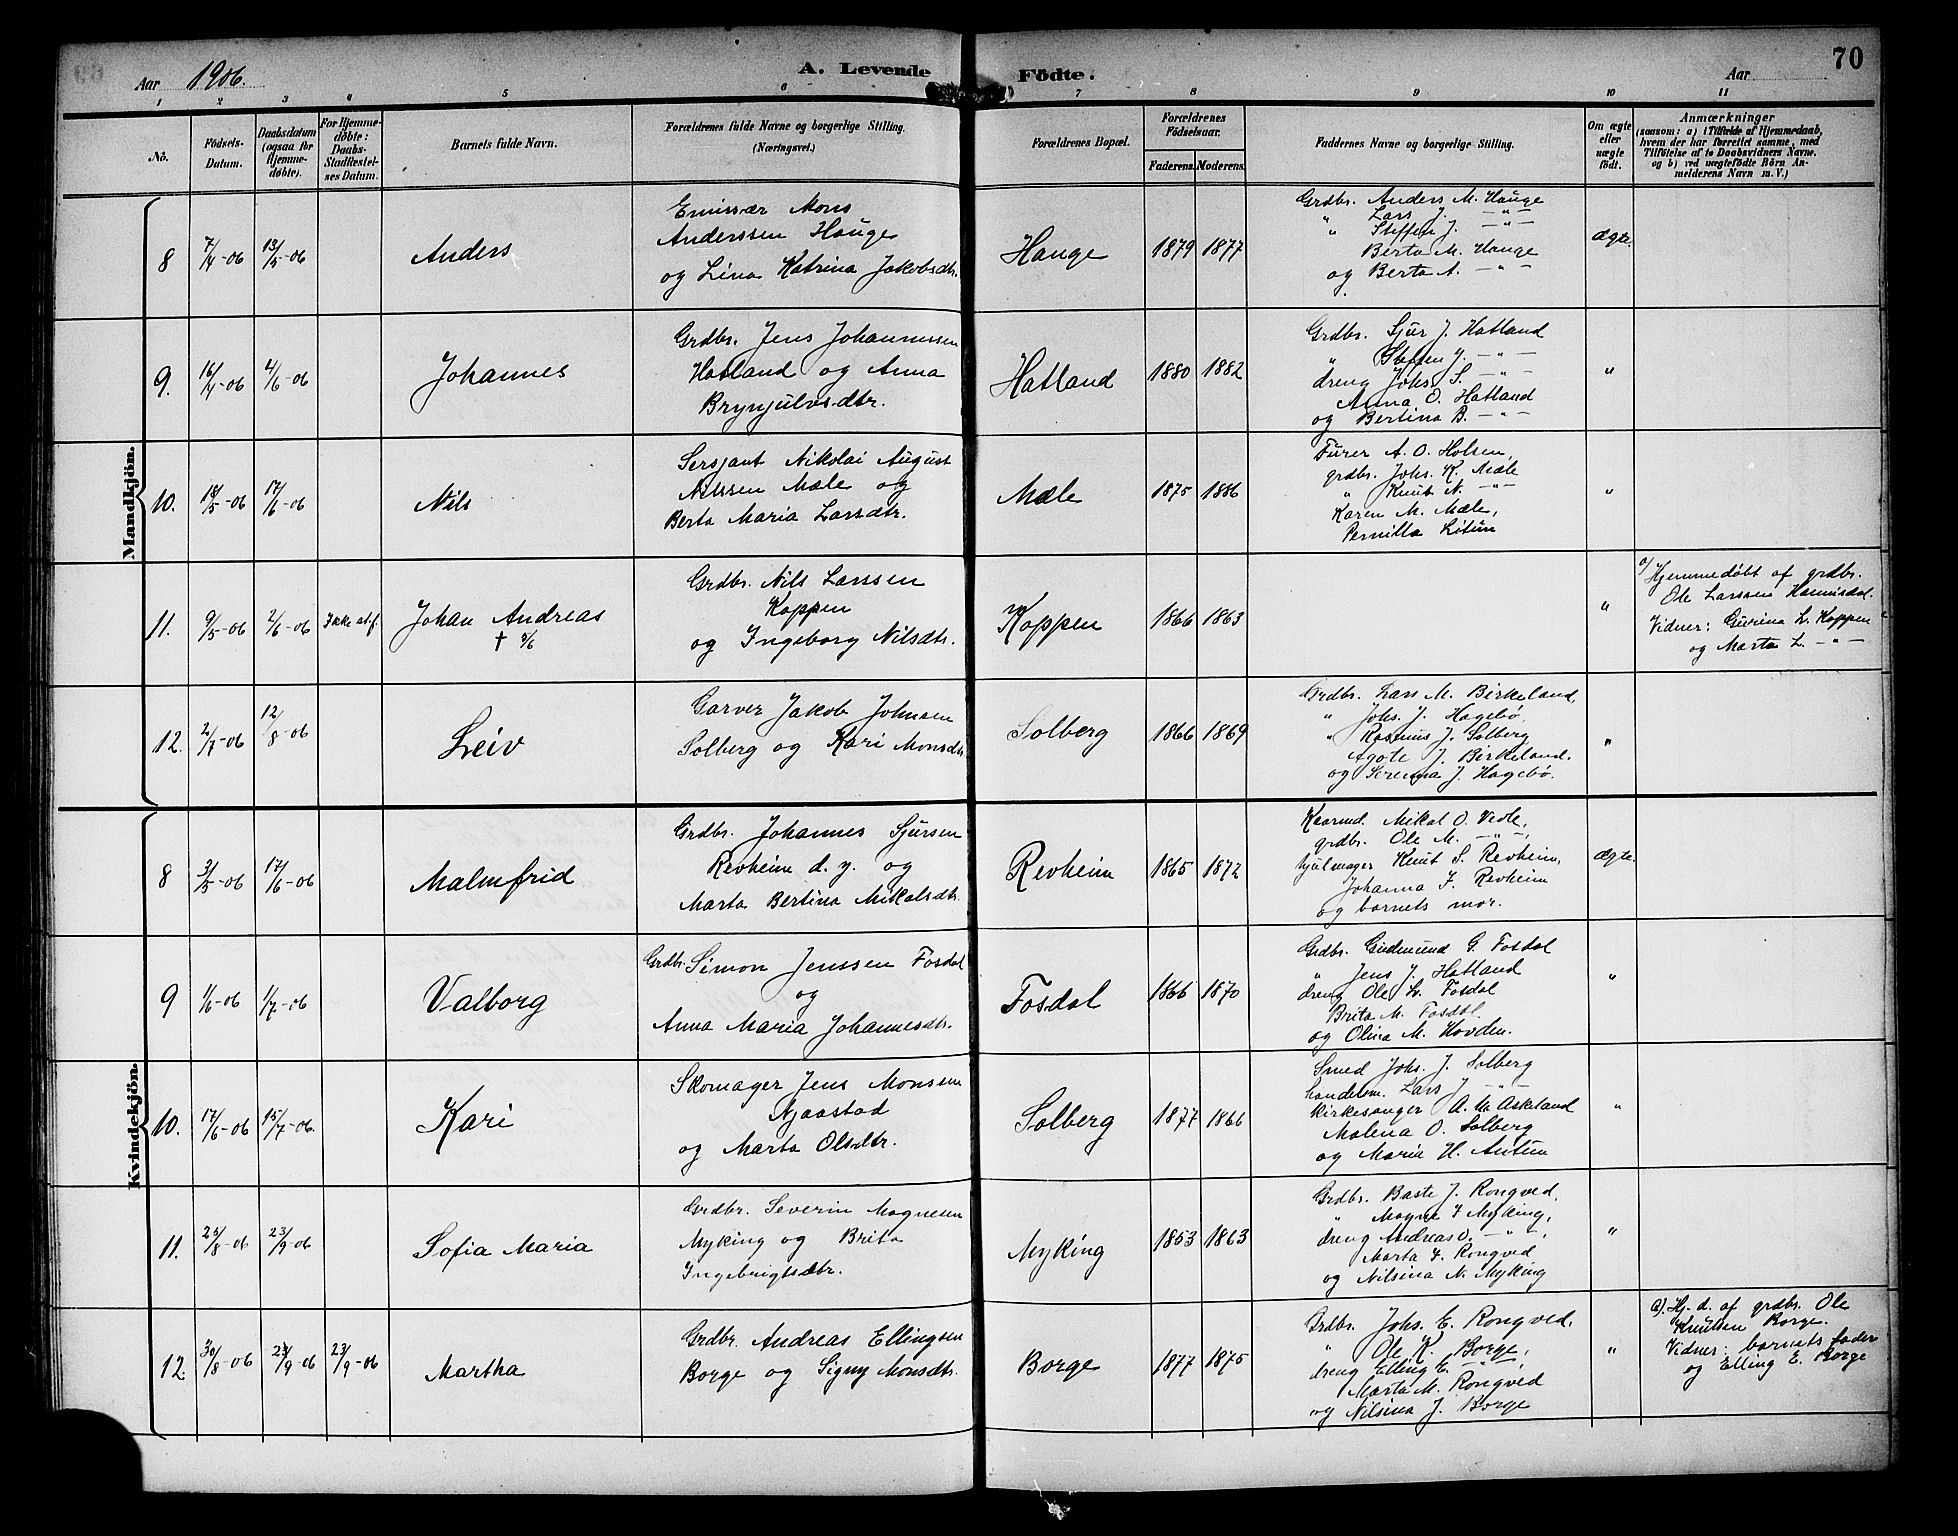 Aar 1906. A. Levende Födte. Aar 70
1 2 3 4 5 6 7 8 9 10 11
No. Födsels-Datum. Daabsdatum (ogsaa for Hjemmedöbte). For Hjemmedöbte: Daabs-Stadfæstelses Datum. Barnets fulde Navn. Forældrenes fulde Navne og borgerlige Stilling. (Næringsvei.) Forældrenes Bopæl. Forældrenes Födselsaar. Faderens. Moderens. Faddernes Navne og borgerlige Stilling. Om ægte eller uægte födt. Anmærkninger (saasom: a) i Tilfælde af Hjemmedaab, hvem der har forrettet samme, med Tilföielse af to Daabsvidners Navne, og b) ved uægtefödte Börn Anmelderens Navn m. V.)
Mandkjön.
8 7/4-06 13/5-06 Anders
Emissær Mons
Anderssen Hauge
og Lina Katrina Jakobsdtr.
Hauge 1879 1877
Grdbr. Anders M. Hauge
" Lars J. -"-
" Steffen J. -"-
Berta M. Hauge
og Berta A. -"-
Ægte.
9. 16/4-06 4/6-06 Johannes
Grdbr. Jens Johannessen
Hatland og Anna
Brynjulvsdtr.
Hatland 1880 1882
Grdbr. Sjur J. Hatland
" Steffen J. -"-
dreng Johs. S. -"-
Anna O. Hatland
og Bertina B. -"-
"
10. 18/5-06 17/6-06 Nils
Sersjant Nikolai August
Nilssen Mæle og
Berta Maria Larsdtr.
Mæle 1875 1886
Furer A. O. Holsen,
grdbr. Johs. K. Mæle
" Knut N. -"-
Karen M. Mæle,
Pernilla
"
11. 9/5-06 2/6-06 Ikke st.f. Johan Andreas
Grdbr. Nils Larssen
Koppen
og Ingeborg Nilsdtr.
Koppen 1866 1863
"
a/ Hjemmedöbt af grdbr.
Ole Larssen
Vidner: Gurina L. Koppen
og Marta L. -"-
12. 2/7-06 12/8-06 Leiv
Garver Jakob Johnsen
Solberg og Kari Monsdtr.
Solberg 1866 1869
Grdbr. Lars M. Birkeland,
" Johs. J. Hagebø,
" Rasmus J. Solberg
Agote J. Birkeland,
og Serina J. Hagebø.
"
Kvindekjön.
8 3/5-06 17/6-06 Malmfrid
Grdbr. Johannes Sjursen
Revheim d. y. og
Marta Bertina Mikalsdtr.
Revheim 1865 1872
Kaarmd. Mikal O. Vedle,
grdbr. Ole M. -"-,
hjulmager Knut S. Revheim,
Johanna J. Revheim
og barnets mor.
Ægte.
9 1/6-06 1/7-06 Valborg
Grdbr. Simon Jenssen Fosdal
og
Anna Maria Johannesdtr.
Fosdal 1866 1870
Grdbr. Gudmund G. Fosdal
" Jens J. Hatland
dreng Ole L. Fosdal
Brita M. Fosdal.
og Olina M. Hovden.
"
10. 17/6-06 15/7-06 Kari
Skomager Jens Monsen
Njaastad
og Marta Olsdtr.
Solberg 1877 1866
Smed Johs. J. Solberg
handelsm. Lars J. -"-
kirkesanger A. M. Askeland
Malena O. Solberg
og Maria H. Antun
"
11. 25/8-06 23/9-06 Sofia Maria
Grdbr. Severin Magnesen
Myking og Brita
Ingebrigtsdtr.
Myking 1853 1863
Grdbr. Baste J. Rongved,
" Magne J. Myking,
dreng Andreas O. -"-,
Marta J. Rongved
og Nilsina N. Myking
"
12 30/8-06 23/9-06 23/9-06 Martha
Grdbr. Andreas Ellingsen
Borge og Signy Monsdtr.
Borge 1877 1875
Grdbr. Johs. E. Rongved,
" Ole K. Borge,
dreng Elling E. -"-,
Marta M. Rongved
og Nilsina J. Borge
"
a). Hj. d. af grdbr. Ole
Knutsen Borge.
Vidner: barnets fader
og Elling E. Borge